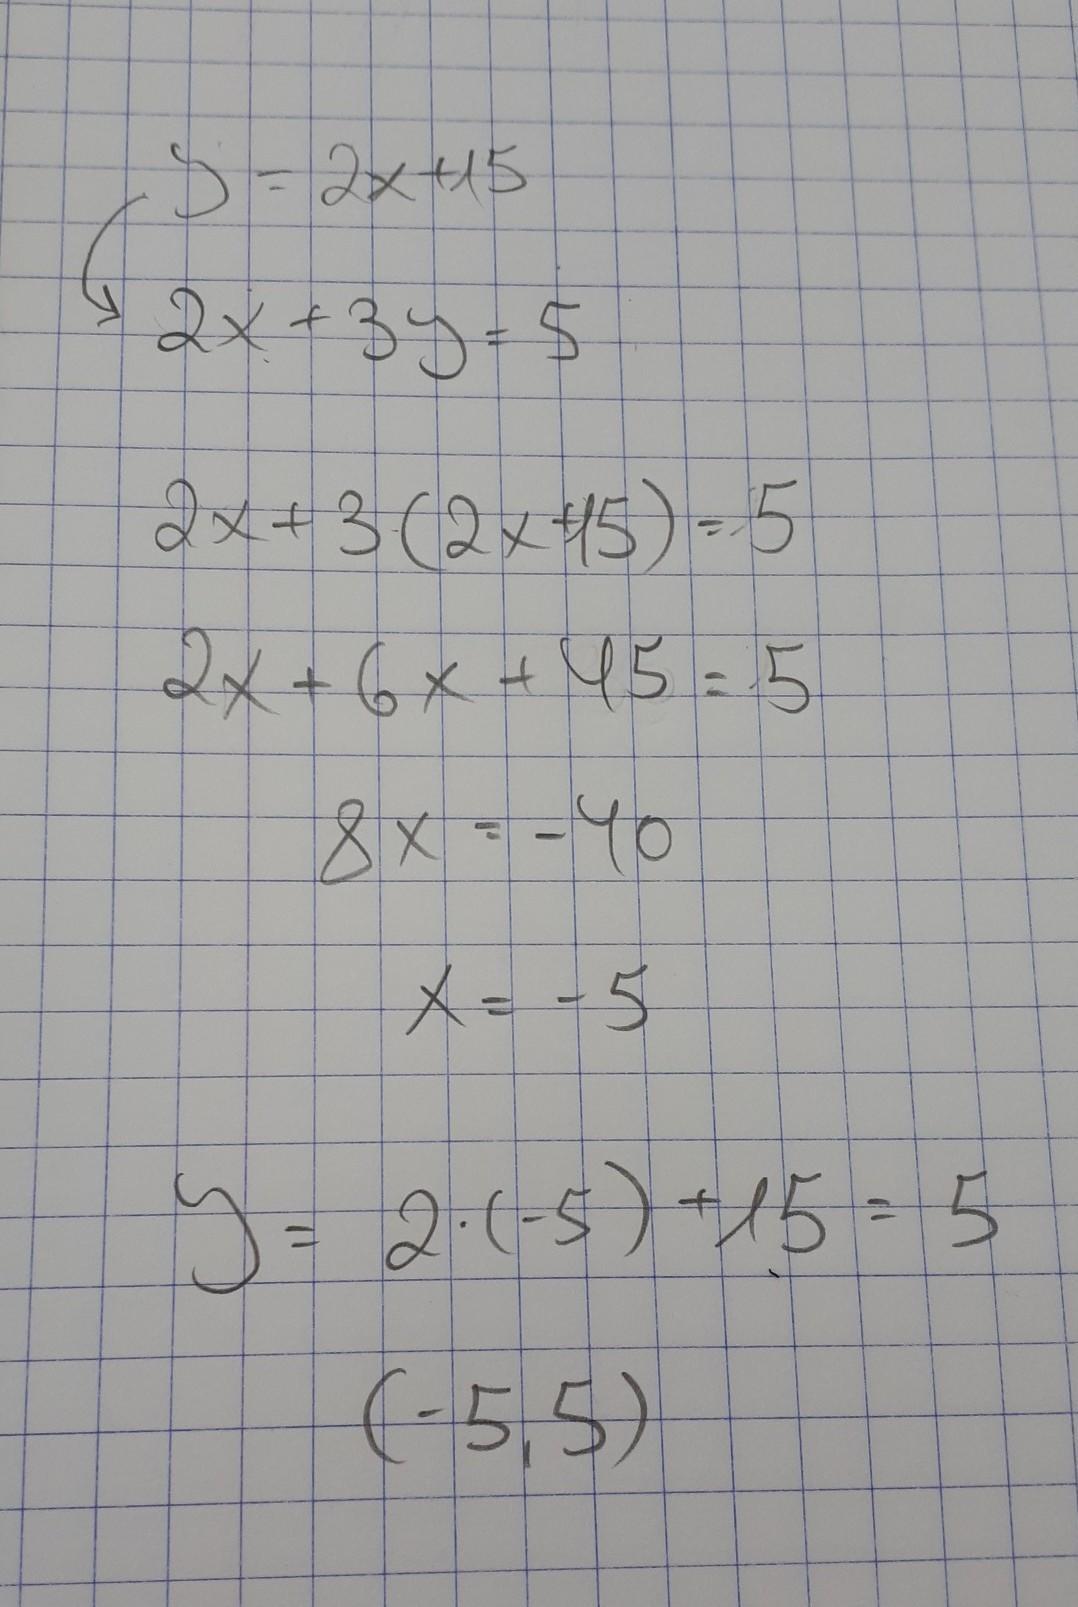 y = 2x+15
2x + 3y = 5
2x + 3(2x+15) = 5
2x + 6x + 45 = 5
8x = -40
x = -5
y = 2·(-5) + 15 = 5
(-5,5)